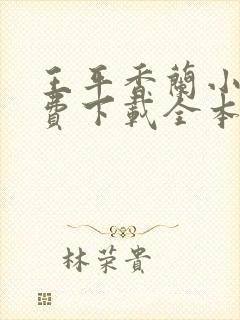 王平香蘭小
費下載全本
林荣貴